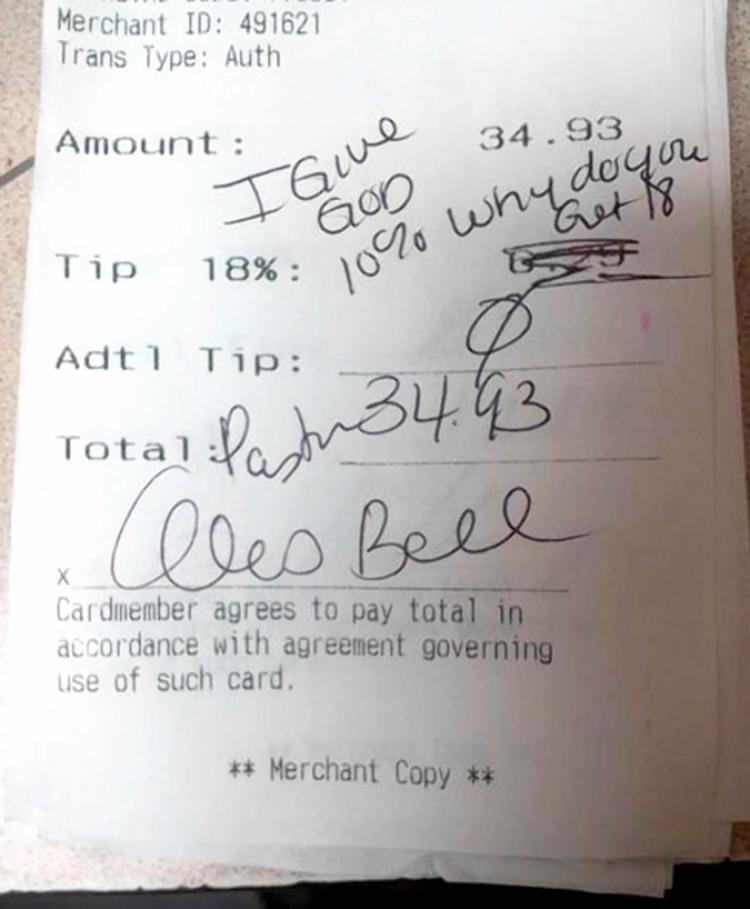 Merchant ID: 491621
Trans Type: Auth
Amount: 34.93
I Give
GOD
10% Why do you
Get 18
Tip 18%:
Adtl Tip:
Total: Pastor 34.93
X Bell
Cardmember agrees to pay total in
accordance with agreement governing
use of such card.
** Merchant Copy **